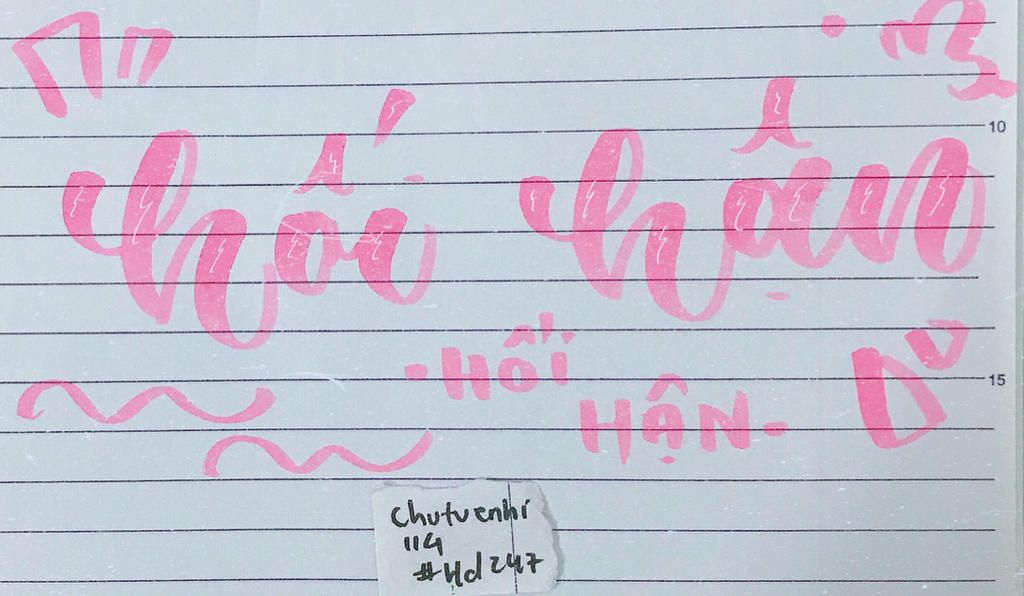 10
hối hận
15
-HỐI
HẬN-
Chutuenhi
114
#Hd247